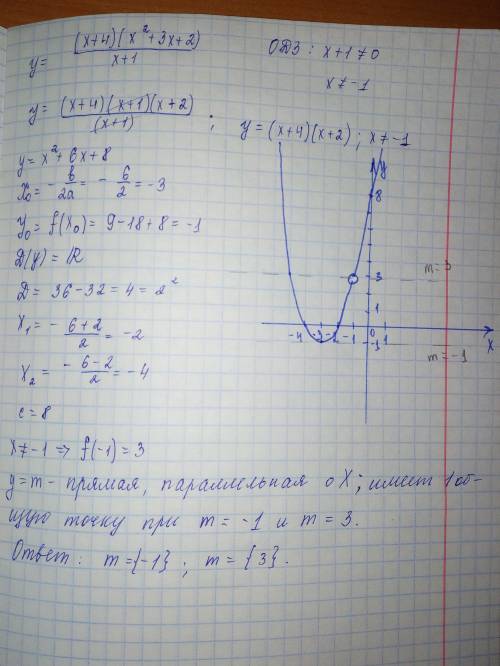 y = (x+4)(x²+3x+2) / x+1
ОДЗ: x+1≠0
x≠-1
y = (x+4)(x+1)(x+2) / (x+1) ; y = (x+4)(x+2); x≠-1
y = x²+6x+8
x₀ = - b/2a = - 6/2 = -3
y₀ = f(x₀) = 9-18+8 = -1
D(y) = R
D = 36-32 = 4 = 2²
x₁ = - 6+2/2 = -2
x₂ = - 6-2/2 = -4
c = 8
x≠-1 => f(-1) = 3
y = m - прямая, параллельная oX; имеет 1 об-
щую точку при m = -1 и m = 3.
Ответ: m = {-1}; m = {3}.
y
8
m = 3
3
1
-4 -3 -2 -1 0 1
x
-1
m = -1